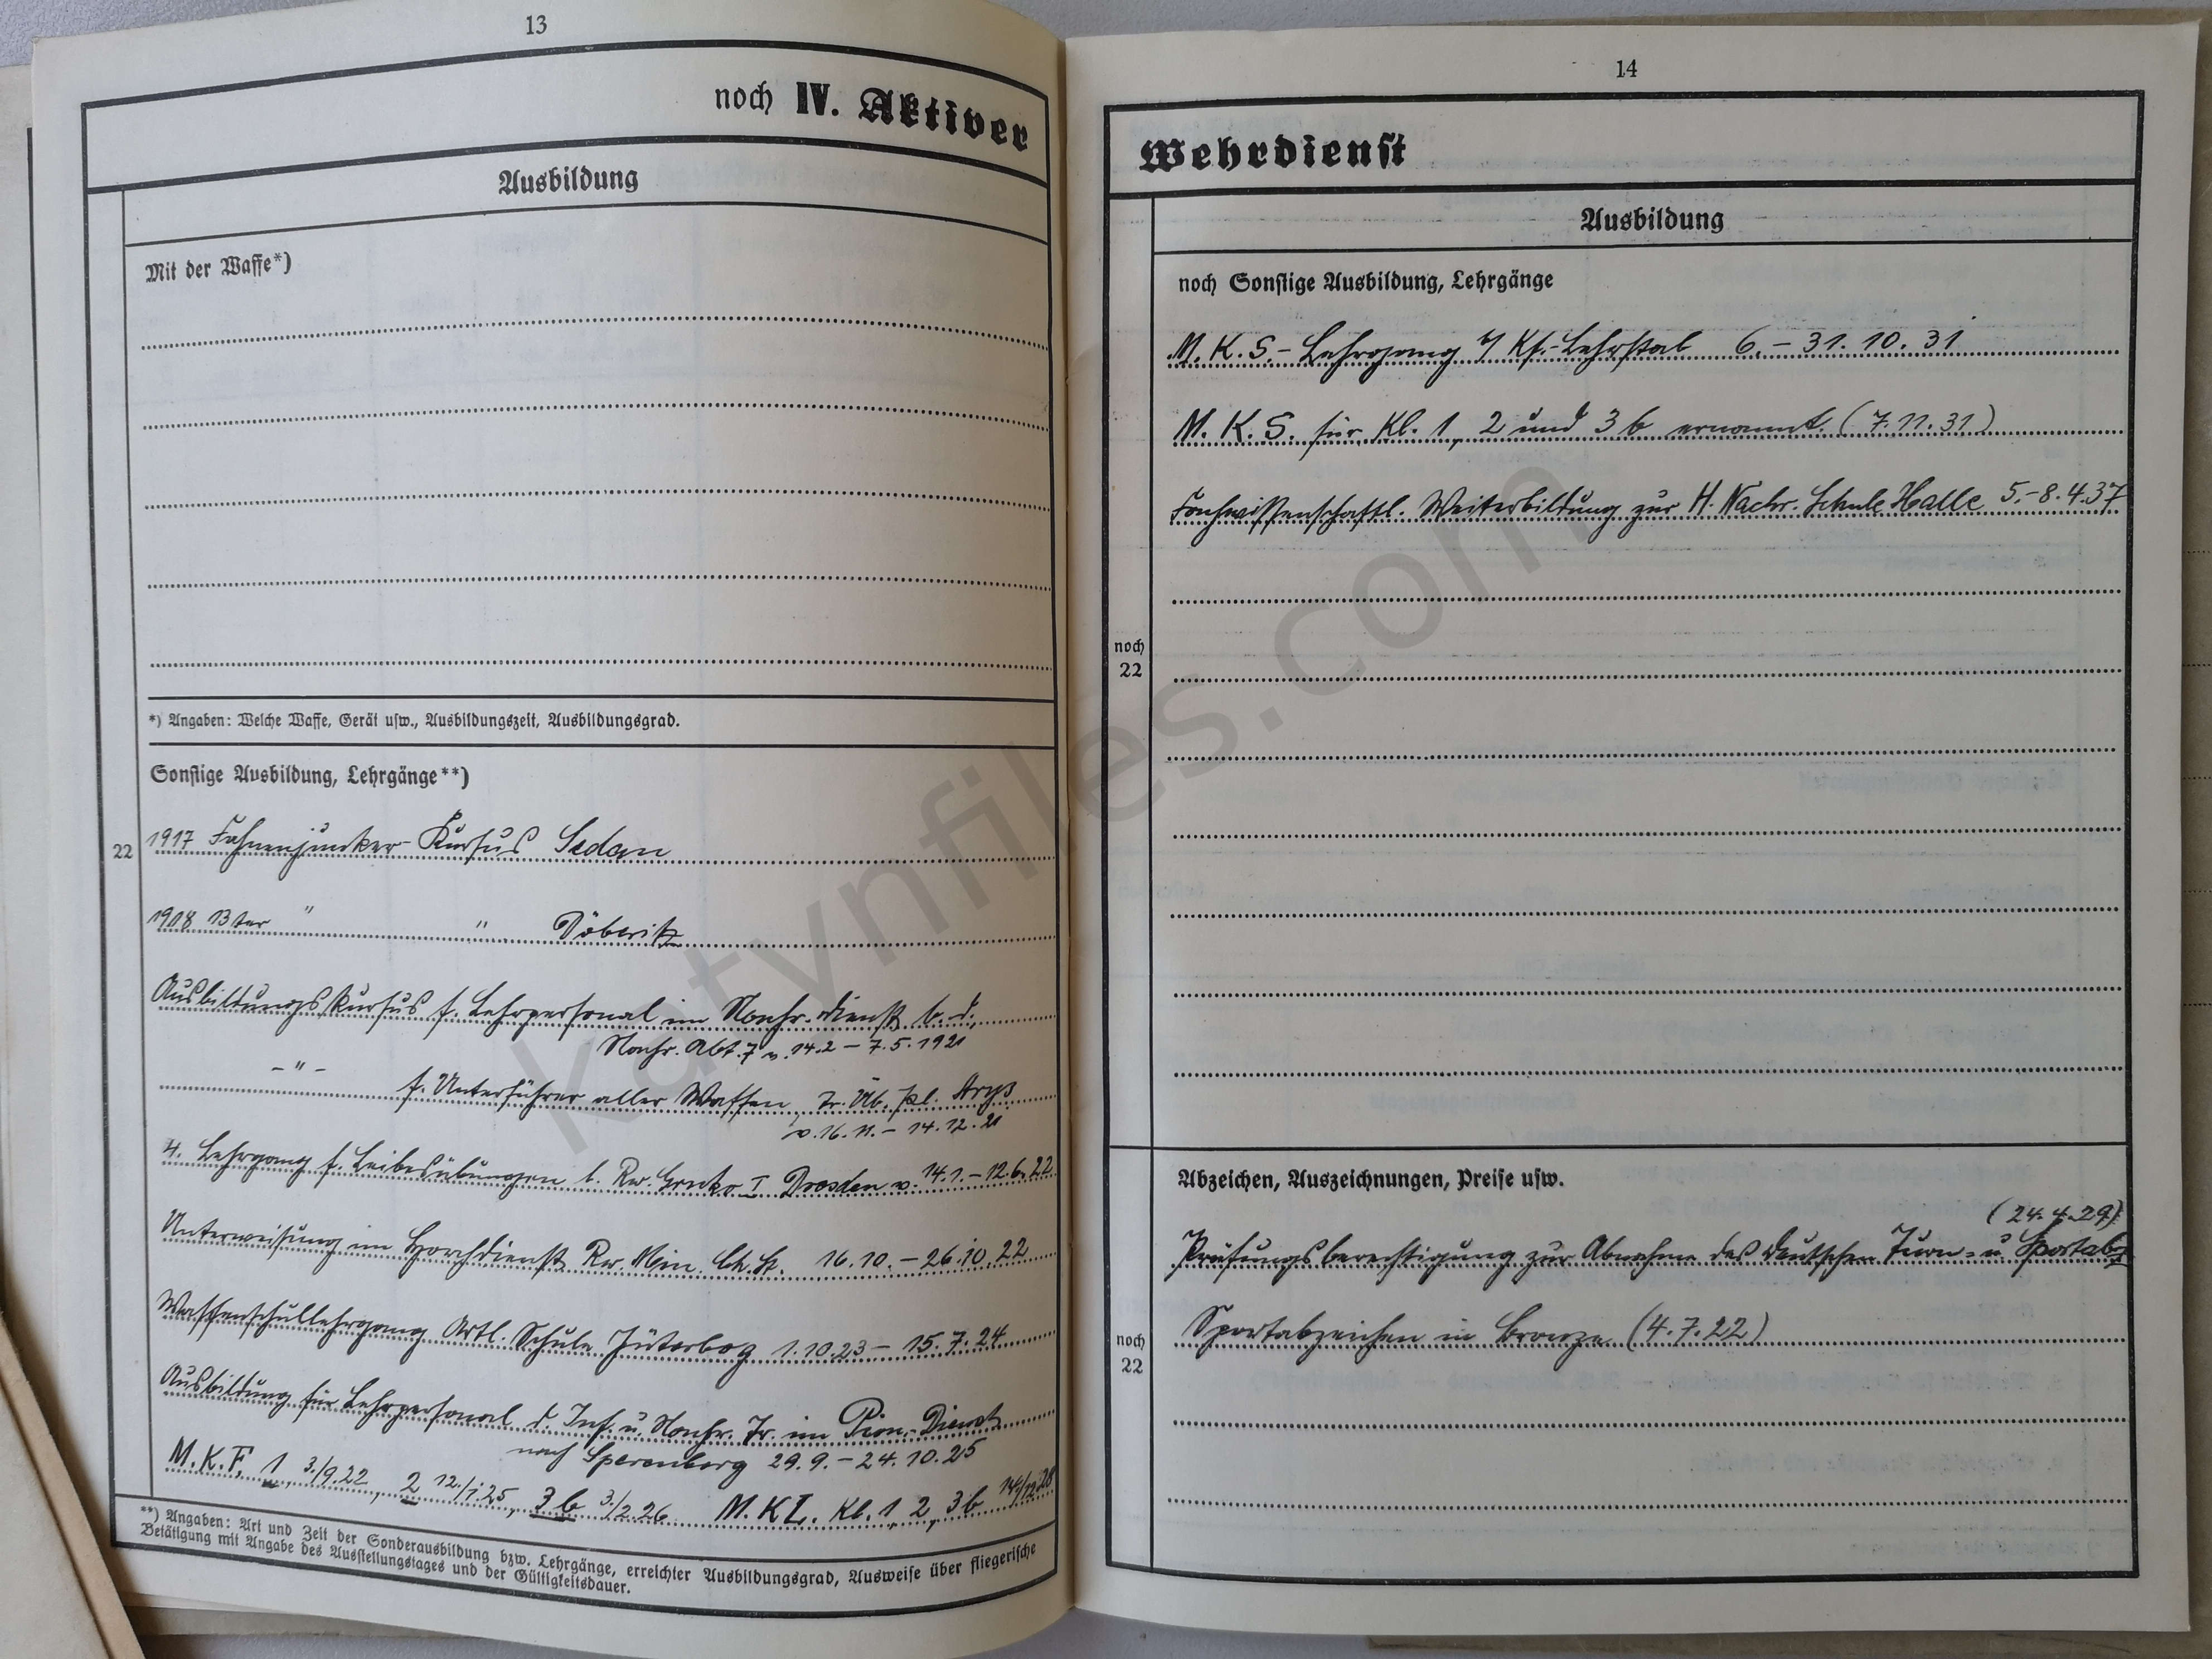 13
noch IV. Aktiver
Ausbildung
Mit der Waffe*)
*) Angaben: Welche Waffe, Gerät usw., Ausbildungszeit, Ausbildungsgrad.
Sonstige Ausbildung, Lehrgänge**)
22
1917 Fahnenjunker-Kursus Sedan
1918 13ter " " Döberitz
Ausbildungskursus f. Lehrpersonal im Nachr.dienst b. d.
Nachr. Abt. 7 v. 14.2 – 7.5.1921
– " – f. Unterführer aller Waffen Tr. Üb. Pl. Arys
v. 16.11. – 14.12.21
4. Lehrgang f. Leibesübungen b. Rw. Grnko I Dresden v. 14.1. – 12.6.22
Unterweisung im Horchdienst Rw. Min. Ch. St. 16.10. – 26.10.22
Waffenschullehrgang Artl. Schule Jüterbog 1.10.23 – 15.7.24
Ausbildung für Lehrpersonal d. Inf. u. Nachr. Tr. im Pion.-Dienst
nach Sperenberg 29.9. – 24.10.25
M.K.F. 1 3./9.22, 2 12./1.25, 3b 3./2.26 M.K.L. Kl. 1, 2, 3b 14/12.28
**) Angaben: Art und Zeit der Sonderausbildung bzw. Lehrgänge, erreichter Ausbildungsgrad, Ausweise über fliegerische
Betätigung mit Angabe des Ausstellungstages und der Gültigkeitsdauer.
14
Wehrdienst
Ausbildung
noch Sonstige Ausbildung, Lehrgänge
M.K.S.-Lehrgang Kf.-Lehrstab 6. – 31.10.31
M.K.S. für Kl. 1, 2 und 3b ernannt. (7.11.31)
Fachwissenschaftl. Weiterbildung zur H. Nachr. Schule Halle 5.–8.4.37
noch
22
Abzeichen, Auszeichnungen, Preise usw.
(24.4.29)
Prüfungsberechtigung zur Abnahme des Deutschen Turn- u. Sportabz.
noch
22
Sportabzeichen in Bronze (4.7.22)
katynfiles.com